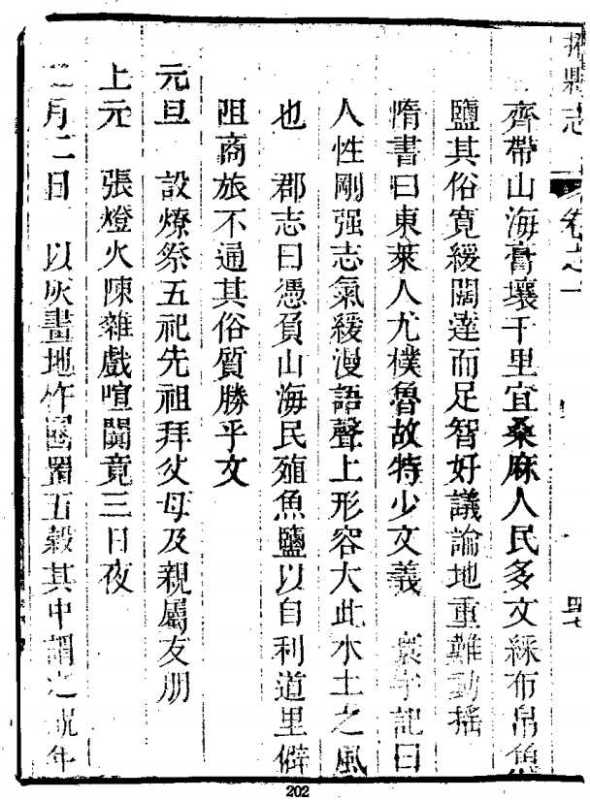 掖縣志 卷之一 四七
齊帶山海膏壤千里宜桑麻人民多文綵布帛魚
鹽其俗寬緩闊達而足智好議論地重難動搖
惰書曰東萊人尤樸魯故特少文義 寰宇記曰
人性剛强志氣緩漫語聲上形容大此水土之風
也 郡志曰憑負山海民殖魚鹽以自利道里僻
阻商旅不通其俗質勝乎文
元旦 設燎祭五祀先祖拜父母及親屬友朋
上元 張燈火陳雜戲喧闐竟三日夜
二月二日 以灰畫地作囷置五穀其中謂之
202